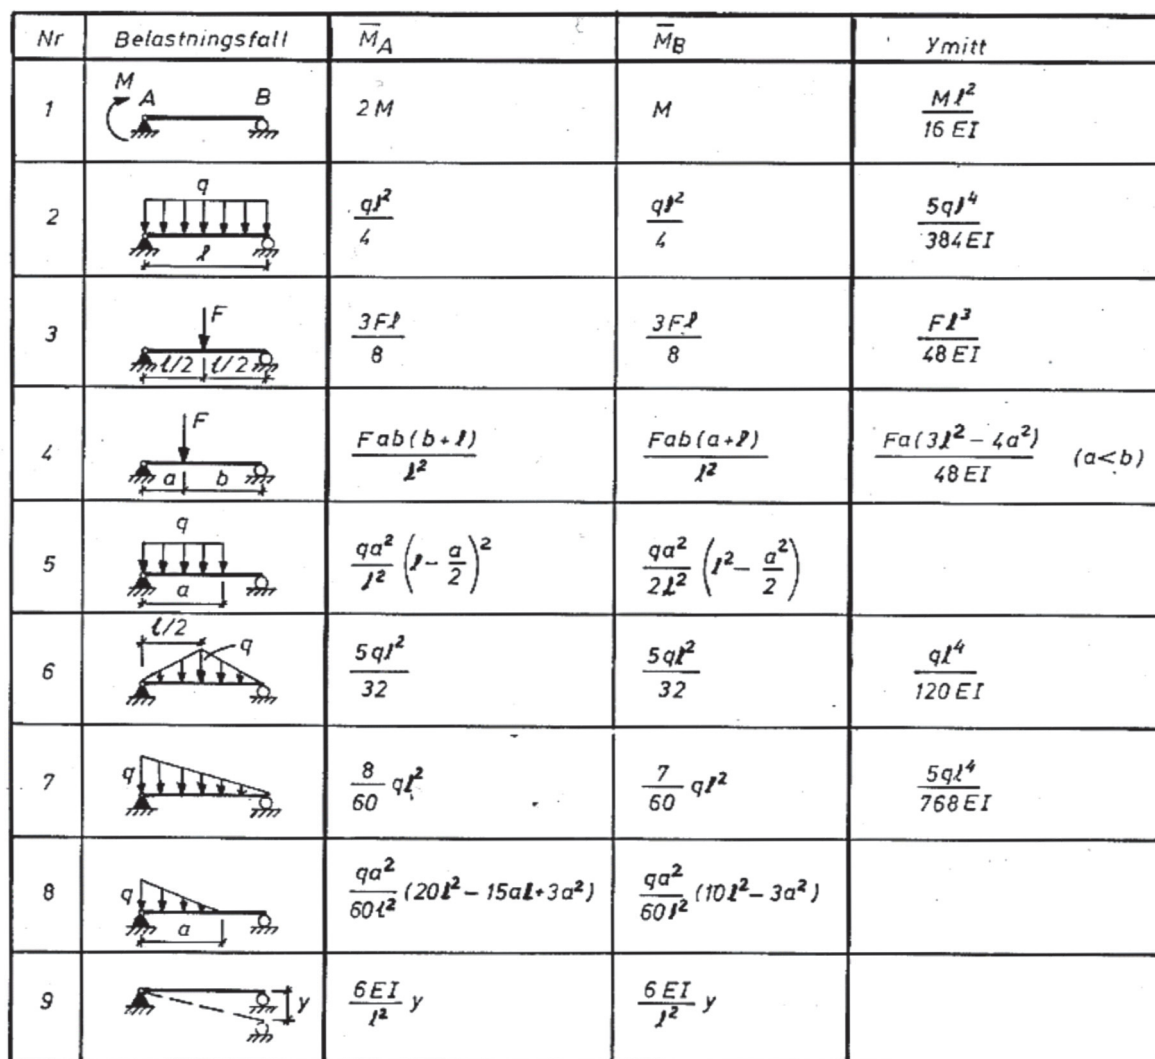 Nr Belastningsfall M̅A M̅B ymitt
1 M A B 2M M Mℓ²/16 EI
2 q ℓ qℓ²/4 qℓ²/4 5qℓ⁴/384 EI
3 F ℓ/2 ℓ/2 3Fℓ/8 3Fℓ/8 Fℓ³/48 EI
4 F a b Fab(b+ℓ)/ℓ² Fab(a+ℓ)/ℓ² Fa(3ℓ²−4a²)/48 EI (a<b)
5 q a qa²/ℓ² (ℓ−a/2)² qa²/2ℓ² (ℓ²−a²/2)
6 ℓ/2 q 5qℓ²/32 5qℓ²/32 qℓ⁴/120 EI
7 q 8/60 qℓ² 7/60 qℓ² 5qℓ⁴/768 EI
8 q a qa²/60ℓ² (20ℓ²−15aℓ+3a²) qa²/60ℓ² (10ℓ²−3a²)
9 y 6EI/ℓ² y 6EI/ℓ² y